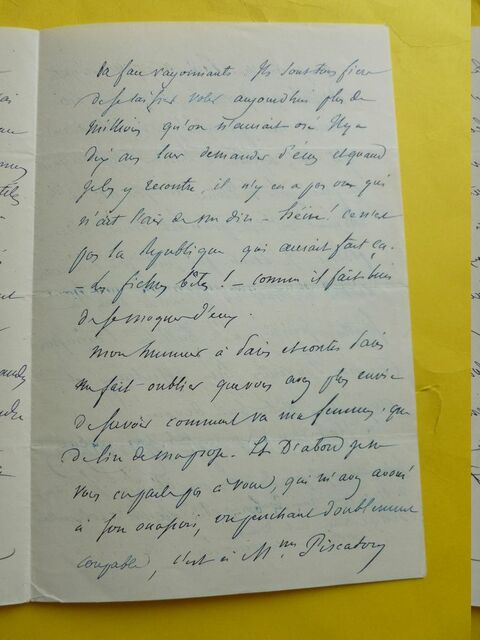 sa face rayonnante. Ils sont tous fiers
de se laisser voler aujourd'hui plus de
millions qu'on n'aurait osé il y a
dix ans leur demander d'écus et quand
je les y rencontre, il n'y en a pas un qui
n'ait l'air de me dire – hein! ce n'est
pas la République qui aurait fait ça.
– Les fichues bêtes! – comme il fait bien
de se moquer d'eux.
Mon humeur à Paris et contre Paris
me fait oublier que vous avez plus envie
de savoir comment va ma femme, que
de lire de ma prose. Et d'abord je ne
vous en parle pas à vous, qui m'avez avoué
à son endroit, un penchant doublement
coupable, c'est à Mme Piscatory